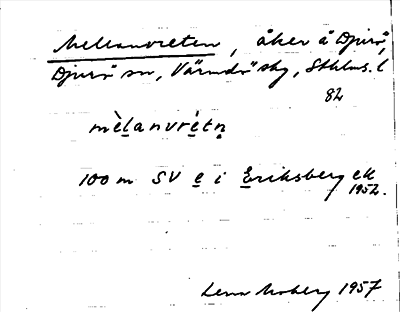 Mellanvreten, åker å Djurö,
Djurö sn, Värmdö skg, Sthlms. l
82
mèlanvrétn̥
100 m SV e i Eriksberg ek
1952.
Lena Moberg 1957